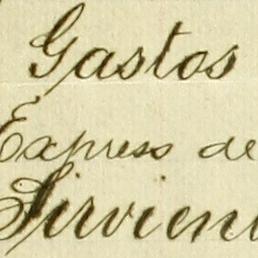 Gastos
Express de
Sirvien